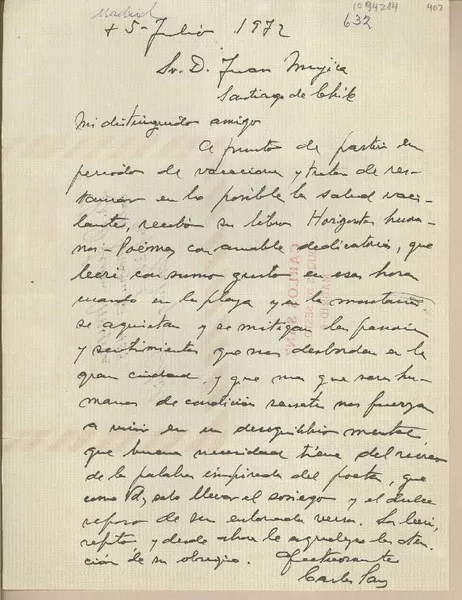 Madrid
1094214
403
632
+ 5 - Julio 1972
Sr. D. Juan Mujica
Santiago de Chile
Mi distinguido amigo
A punto de partir en
periodo de vacaciones y tratar de res-
taurar en lo posible la salud vaci-
lante, recibo su libro Horizontes huma-
nos - Poemas con amable dedicatoria, que
leeré con sumo gusto en esas horas
cuando en la playa y en la montaña
se aquietan y se mitigan las pasiones
y sentimientos que nos desbordan en la
gran ciudad y que mas que seres hu-
manos de condición sensata nos fuerza
a vivir en un desequilibrio mental,
que buena necesidad tiene del recreo
de la palabra inspirada del poeta, que
como Vd, sabe llevar el sosiego y el dulce
reposo de su verso. Lo leeré,
repito y desde ahora le agradezco la aten-
ción de su obsequio. Afectuosamente
Carlos